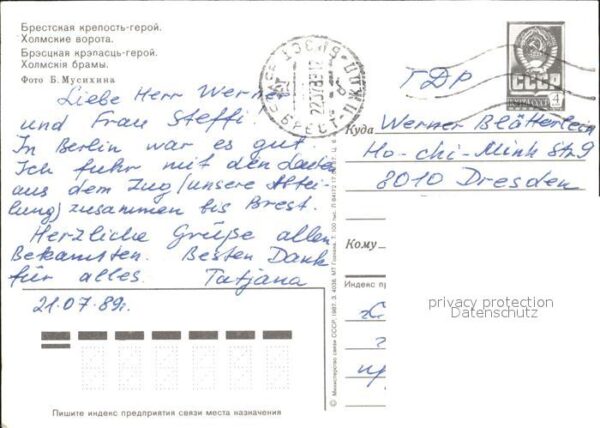 Брестская крепость-герой.
Холмские ворота.
Брэсцкая крэпасць-герой.
Холмскія брамы.
Фото Б. Мусихина
Liebe Herr Werner
und Frau Steffi!
In Berlin war es gut.
Ich fuhr mit den Leuten
aus dem Zug (unsere Abtei-
lung) zusammen bis Brest.
Herzliche Grüße allen
Bekannten. Besten Dank
für alles. Tatjana
21.07.89г.
Пишите индекс предприятия связи места назначения
© Министерство связи СССР, 1987.
СССР
БРЕСТ
СССР
4
ГДР
Куда Werner Blätterlein
Ho-chi-Minh Str. 9
8010 Dresden
Кому
Индекс пр
privacy protection
Datenschutz